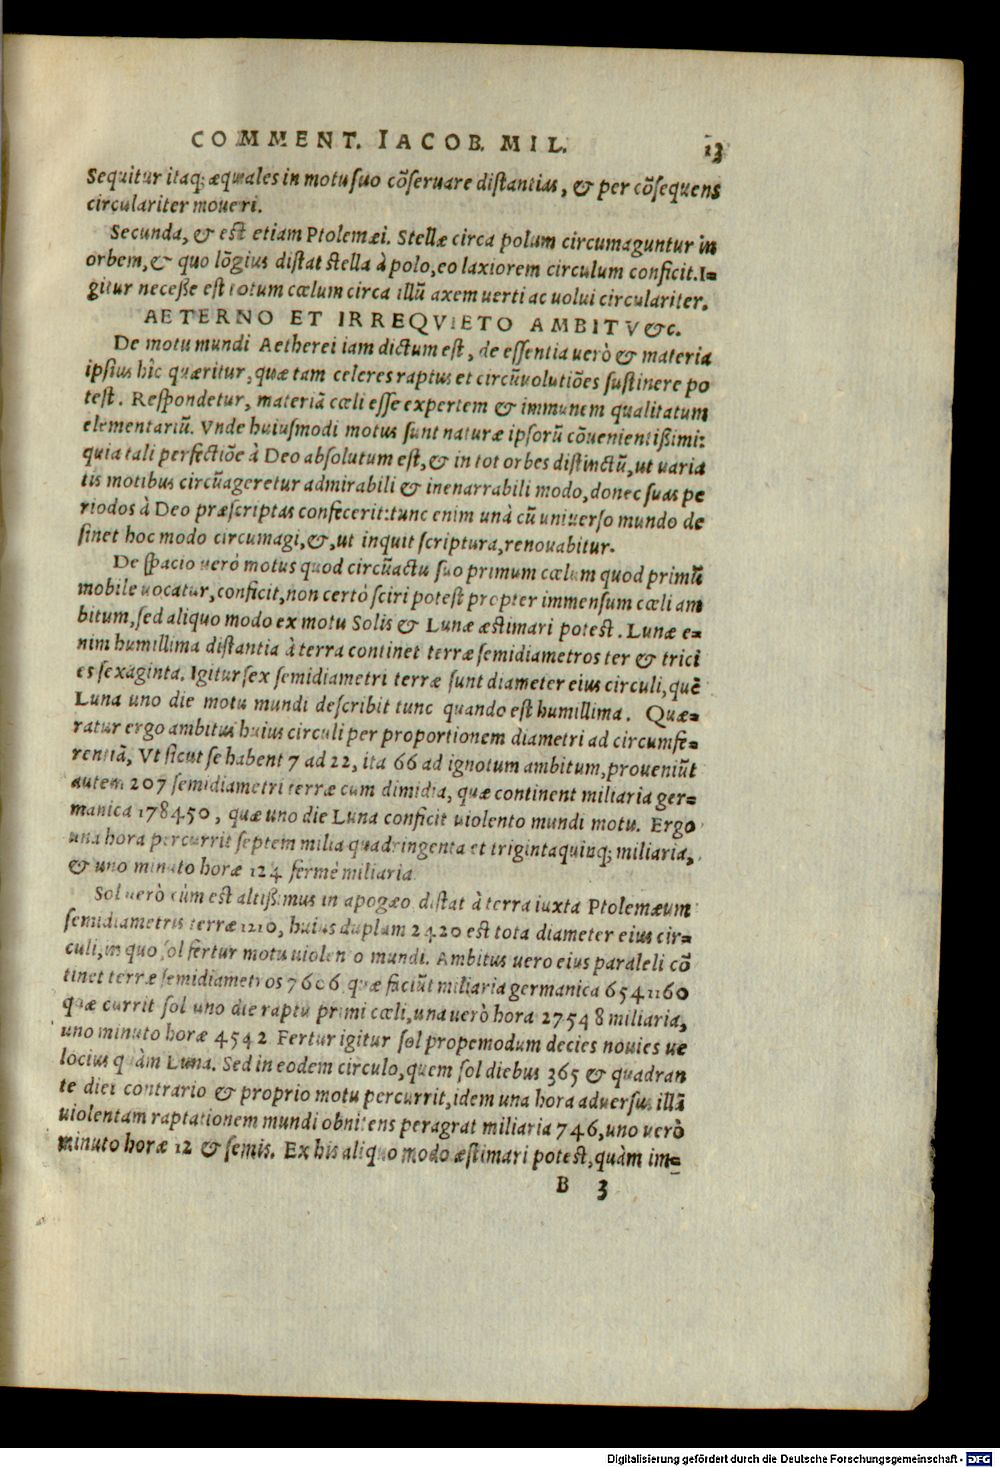 COMMENT. IACOB. MIL. 13
Sequitur itaq; æquales in motu suo cõseruare distantias, & per cõsequens
circulariter moueri.
Secunda, & est etiam Ptolemæi. Stellæ circa polum circumaguntur in
orbem, & quo lõgius distat stella à polo, eo laxiorem circulum conficit. I=
gitur necesse est totum cœlum circa illũ axem uerti ac uolui circulariter.
AETERNO ET IRREQVIETO AMBITV &c.
De motu mundi Aetherei iam dictum est, de essentia uerò & materia
ipsius hîc quæritur, quæ tam celeres raptus et circũuolutiões sustinere po
test. Respondetur, materiã cœli esse expertem & immunem qualitatum
elementariũ. Vnde huiusmodi motus sunt naturæ ipsorũ cõuenientissimi:
quia tali perfectiõe à Deo absolutum est, & in tot orbes distinctũ, ut uaria
tis motibus circũageretur admirabili & inenarrabili modo, donec suas pe
riodos à Deo præscriptas confecerit: tunc enim unà cũ uniuerso mundo de
sinet hoc modo circumagi, &, ut inquit scriptura, renouabitur.
De spacio uerò motus quod circũactu suo primum cœlum quod primũ
mobile uocatur, conficit, non certò sciri potest propter immensum cœli am
bitum, sed aliquo modo ex motu Solis & Lunæ æstimari potest. Lunæ e=
nim humillima distantia à terra continet terræ semidiametros ter & trici
es sexaginta. Igitur sex semidiametri terræ sunt diameter eius circuli, quẽ
Luna uno die motu mundi describit tunc quando est humillima. Quæ=
ratur ergo ambitus huius circuli per proportionem diametri ad circumfe=
rentiã, Vt sicut se habent 7 ad 22, ita 66 ad ignotum ambitum, proueniũt
autem 207 semidiametri terræ cum dimidia, quæ continent miliaria ger=
manica 178450, quæ uno die Luna conficit uiolento mundi motu. Ergo
una hora percurrit septem milia quadringenta et trigintaquinq; miliaria,
& uno minuto horæ 124 fermè miliaria.
Sol uerò cùm est altissimus in apogæo distat à terra iuxta Ptolemæum
semidiametris terræ 1210, huius duplum 2420 est tota diameter eius cir=
culi, in quo sol fertur motu uiolento mundi. Ambitus uero eius paraleli cõ
tinet terræ semidiametros 7606 quæ faciũt miliaria germanica 6541160
quæ currit sol uno die raptu primi cœli, una uerò hora 27548 miliaria,
uno minuto horæ 4542 Fertur igitur sol propemodum decies nouies ue
locius quàm Luna. Sed in eodem circulo, quem sol diebus 365 & quadran
te diei contrario & proprio motu percurrit, idem una hora aduersus illã
uiolentam raptationem mundi obnitens peragrat miliaria 746, uno uerò
minuto horæ 12 & semis. Ex his aliquo modo æstimari potest, quàm im=
B 3
Digitalisierung gefördert durch die Deutsche Forschungsgemeinschaft - DFG